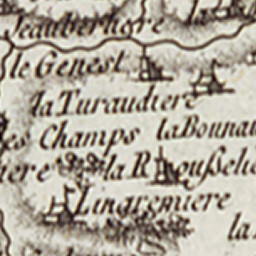 Jeauberhore la
le Genest
la Turaudiere
es Champs la Bonnau
iere la Rousseli
Linarsmiere
la